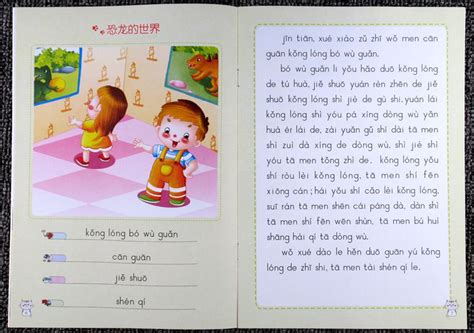 恐龙的世界
kǒng lóng bó wù guǎn
cān guān
jiě shuō
shén qí
jīn tiān, xué xiào zǔ zhī wǒ men cān
guān kǒng lóng bó wù guǎn.
bó wù guǎn li yǒu hǎo duō kǒng lóng
de tú huà, jiě shuō yuán rén zhèn de jiě
shuō kǒng lóng shì jiè de gù shi, yuán lái
kǒng lóng shì yóu pá xíng dòng wù yǎn
huà ér lái de, zài yuǎn gǔ shí dài tā men
shì zuì dà xíng de dòng wù, shì jiè shì
yóu tā men tǒng zhì de. kǒng lóng yǒu
shí ròu lèi kǒng lóng, tā men shí fēn
xiōng cán; hái yǒu shí cǎo lèi kǒng lóng,
suī rán tā men shēn cái páng dà, dàn shì
tā men shí fēn wēn shùn, tā men bú huì
shāng hài qí tā dòng wù.
wǒ xué dào le hěn duō guān yú kǒng
lóng de zhī shi, tā men tài shén qí le.